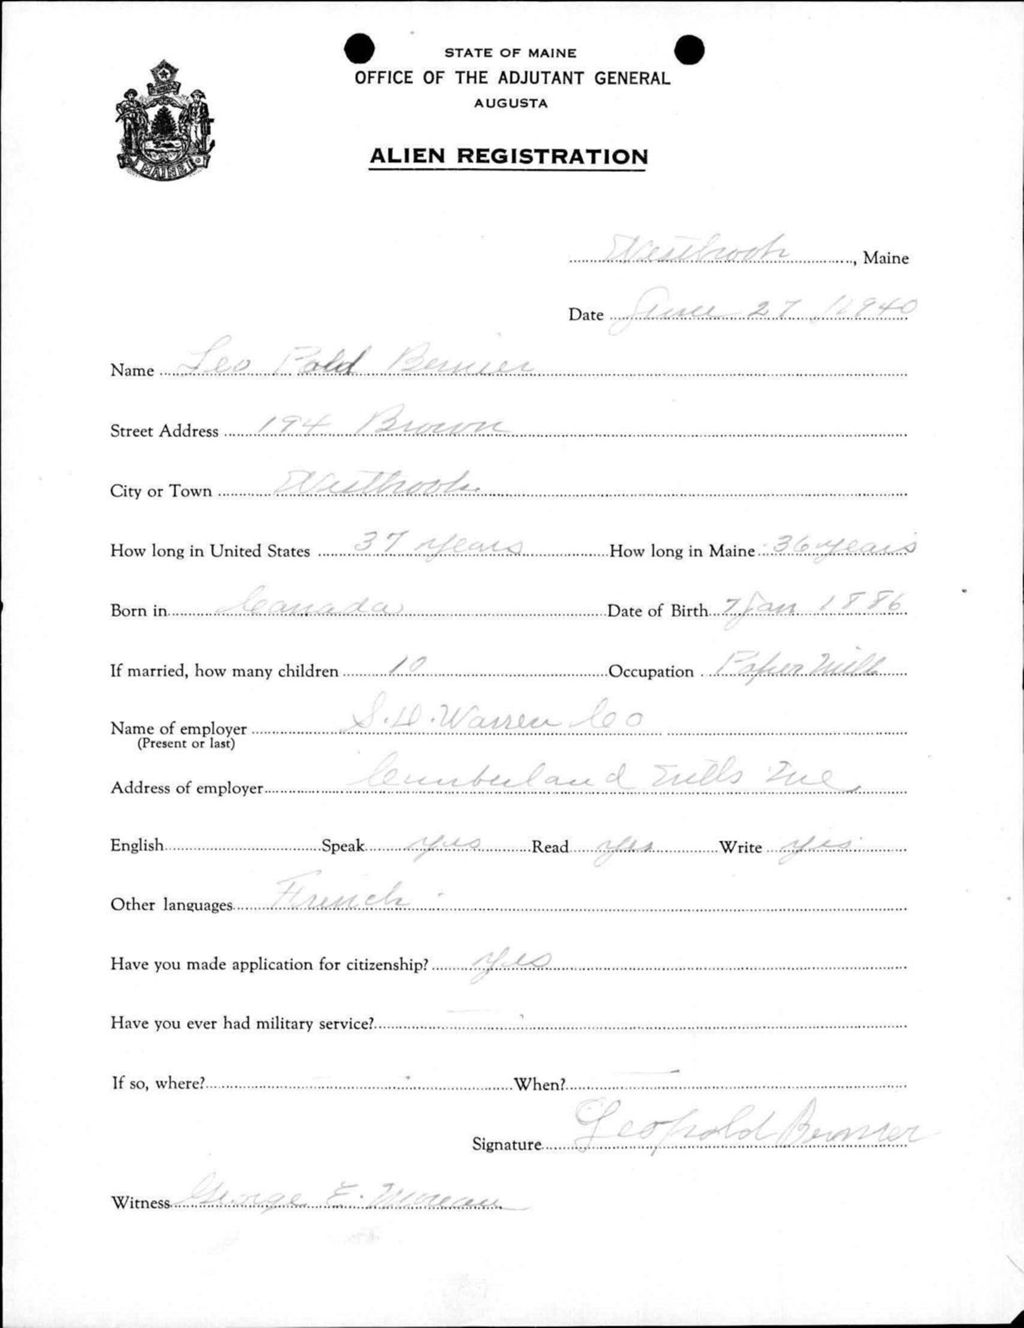 STATE OF MAINE
OFFICE OF THE ADJUTANT GENERAL
AUGUSTA
ALIEN REGISTRATION
MAINE
Westbrook, Maine
Date June 27, 1940
Name Leo Pold Bernier
Street Address 194 Brown
City or Town Westbrook
How long in United States 37 years How long in Maine 36 years
Born in Canada Date of Birth 7 Jan 1886
If married, how many children 10 Occupation Paper Mill
Name of employer S. D. Warren Co
(Present or last)
Address of employer Cumberland Mills Me
English Speak yes Read yes Write yes
Other languages French
Have you made application for citizenship? yes
Have you ever had military service? —
If so, where? - When? —
Signature Leopold Bernier
Witness George E. Moreau